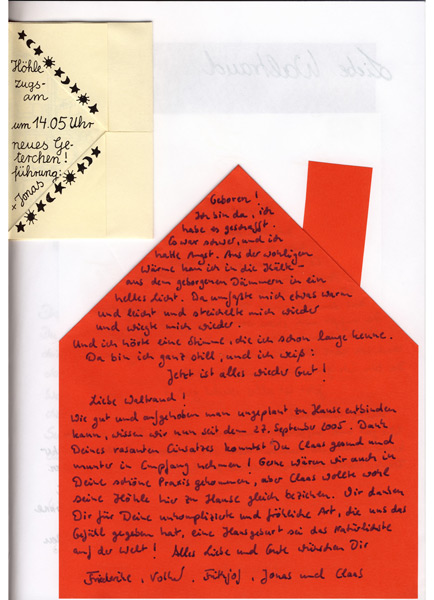 Liebe Waltraud
Höhle
zugs-
am
um 14.05 Uhr
neues Ge-
terchen!
führung:
+ Jonas
Geboren!
Ich bin da, ich
habe es geschafft.
Es war schwer, und ich
hatte Angst. Aus der wohligen
Wärme kam ich in die Kälte -
aus dem geborgenen Dämmern in ein
helles Licht. Da umfaßte mich etwas warm
und leicht und streichelte mich wieder
und wiegte mich wieder.
Und ich hörte eine Stimme, die ich schon lange kenne.
Da bin ich ganz still, und ich weiß:
Jetzt ist alles wieder Gut!
Liebe Waltraud!
Wie gut und aufgehoben man ungeplant zu Hause entbinden
kann, wissen wir nun seit dem 27. September 2005. Dank
Deines rasanten Einsatzes konntest Du Claas gesund und
munter in Empfang nehmen! Gerne wären wir auch in
Deine schöne Praxis gekommen, aber Claas wollte wohl
seine Höhle hier zu Hause gleich beziehen. Wir danken
Dir für Deine unkomplizierte und fröhliche Art, die uns das
Gefühl gegeben hat, eine Hausgeburt sei das Natürlichste
auf der Welt! Alles Liebe und Gute wünschen Dir
Friederike, Volker, Frithjof, Jonas und Claas